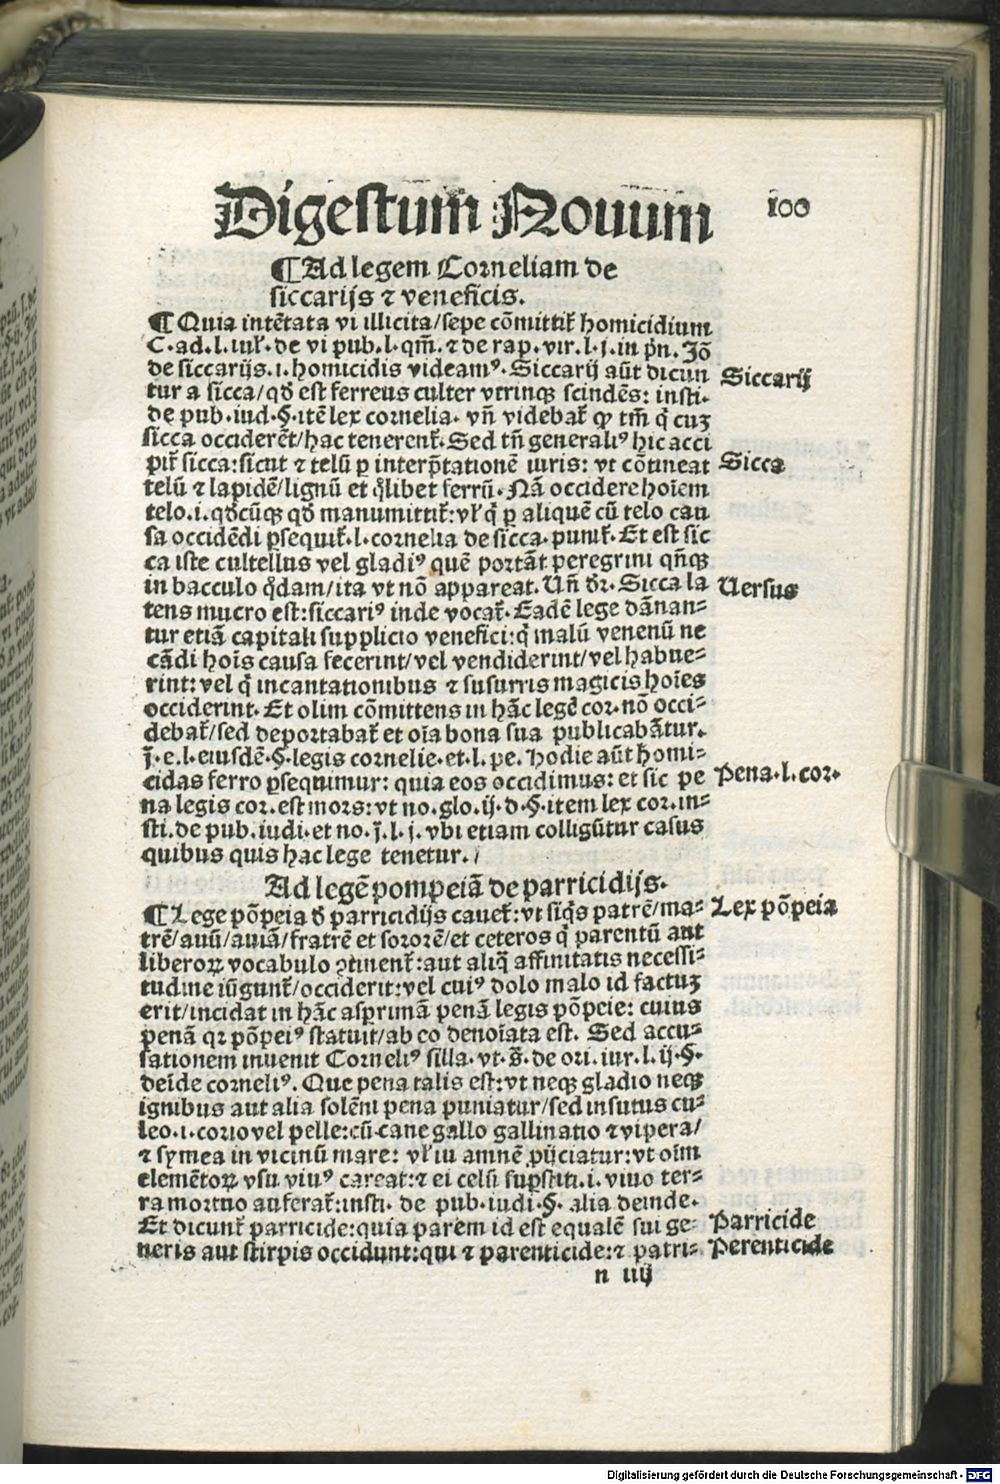 Digestum Novum 100
¶ Ad legem Corneliam de
siccarijs ⁊ veneficis.
¶ Quia intētata vi illicita/sepe cōmittit̃ homicidium
C. ad. l. iul̃. de vi pub. l. qm̃. ⁊ de rap. vir. l. j. in pñ. Jõ
de siccarijs. i. homicidis videamꝰ. Siccarij aūt dicun
tur a sicca/qđ est ferreus culter vtrinqꝫ scindēs: insti.
de pub. iud. §. itē lex cornelia. vñ videbat̃ ꝙ tm̃ q̇ cuꝫ
sicca occiderēt/hac tenerent̃. Sed tñ generaliꝰ hic acci
pit̃ sicca: sicut ⁊ telū ꝑ interp̄tationē iuris: vt cōtineat
telū ⁊ lapidē/lignū et q̇libet ferrū. Nā occidere hoīem
telo. i. qđcūqꝫ qđ manumittit̃: vl̓ q̇ ꝑ aliquē cū telo cau
sa occidēdi ꝑsequit̃. l. cornelia de sicca. punit̃. Et est sic
ca iste cultellus vel gladiꝰ quē portāt peregrini qñqꝫ
in bacculo q̇dam/ita vt nō appareat. Vñ đr. Sicca la
tens mucro est: siccariꝰ inde vocat̃. Eadē lege dānan-
tur etiā capitali supplicio venefici: q̇ malū venenū ne
cādi hoīs causa fecerint/vel vendiderint/vel habue-
rint: vel q̇ incantationibus ⁊ susurris magicis hoīes
occiderint. Et olim cōmittens in hāc legē cor. nō occi-
debat̃/sed deportabat̃ et oīa bona sua publicabātur.
j̄. e. l. eiusdē. §. legis cornelie. et. l. pe. Hodie aūt homi-
cidas ferro ꝑsequimur: quia eos occidimus: et sic pe
na legis cor. est mors: vt no. glo. ij. d. §. item lex cor. in-
sti. de pub. iudi. et no. j̄. l. j. vbi etiam colligūtur casus
quibus quis hac lege tenetur.
Ad legē pompeiā de parricidijs.
¶ Lege pōpeia đ parricidijs cauet̃: vt siq̇s patrē/ma-
trē/auū/auiā/fratrē et sororē/et ceteros q̇ parentū aut
liberoꝝ vocabulo ꝯtinent̃: aut aliq̄ affinitatis necessi-
tudine iūgunt̃/occiderit: vel cuiꝰ dolo malo id factuꝫ
erit/incidat in hāc asprimā penā legis pōpeie: cuius
penā qꝛ pōpeiꝰ statuit/ab eo denoīata est. Sed accu-
sationem inuenit Corneliꝰ silla. vt. s̄. de ori. iur. l. ij. §.
deīde corneliꝰ. Que pena talis est: vt neqꝫ gladio neqꝫ
ignibus aut alia solēni pena puniatur/sed insutus cu-
leo. i. corio vel pelle: cū cane gallo gallinatio ⁊ vipera/
⁊ symea in vicinū mare: vl̓ iu amnē ꝓijciatur: vt oīm
elemētoꝝ vsu viuꝰ careat: ⁊ ei celū suꝑstiti. i. viuo ter-
ra mortuo auferat̃: insti. de pub. iudi. §. alia deinde.
Et dicunt̃ parricide: quia parem id est equalē sui ge-
neris aut stirpis occidunt: qui ⁊ parenticide: ⁊ patri-
n iiij
Siccarij
Sicca
Versus
Pena. l. cor.
Lex pōpeia
Parricide
Perenticide
Digitalisierung gefördert durch die Deutsche Forschungsgemeinschaft - DFG